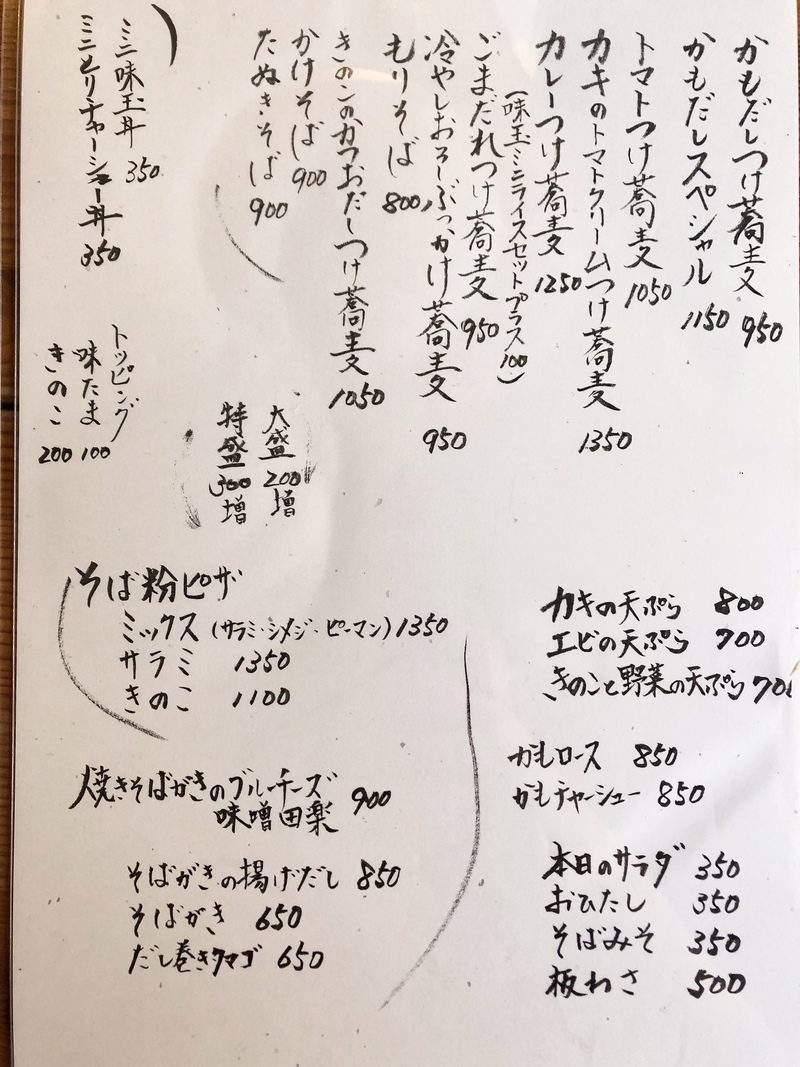 かもだしつけ蕎麦 950
かもだしスペシャル 1150
トマトつけ蕎麦 1050
カキのトマトクリームつけ蕎麦 1350
カレーつけ蕎麦 1250
(味玉ミニライスセットプラス100)
ごまだれつけ蕎麦 950
冷やしおろしぶっかけ蕎麦 950
もりそば 800
きのこのかつおだしつけ蕎麦 1050
かけそば 900
たぬきそば 900
ミニ味玉丼 350
ミニとりチャーシュー丼 350
大盛 200増
特盛 300増
トッピング
味たま 100
きのこ 200
そば粉ピザ
ミックス (サラミ・シメジ・ピーマン) 1350
サラミ 1350
きのこ 1100
焼きそばがきのブルーチーズ
味噌田楽 900
そばがきの揚げだし 850
そばがき 650
だし巻きタマゴ 650
カキの天ぷら 800
エビの天ぷら 700
きのこと野菜の天ぷら 700
かもロース 850
かもチャーシュー 850
本日のサラダ 350
おひたし 350
そばみそ 350
板わさ 500